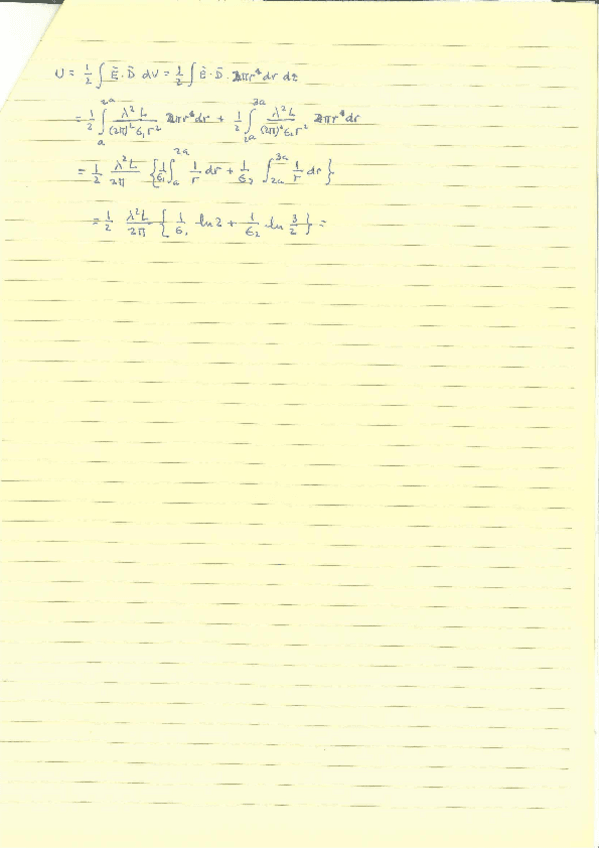 U = 1/2 ∫ Ē · D̄ dV = 1/2 ∫ Ē · D̄ · 2πr dr dz
= 1/2 ∫_a^{2a} λ²L/((2π)² ε₁ r²) 2πr dr + 1/2 ∫_{2a}^{3a} λ²L/((2π)² ε₂ r²) 2πr dr
= 1/2 λ²L/2π { 1/ε₁ ∫_a^{2a} 1/r dr + 1/ε₂ ∫_{2a}^{3a} 1/r dr }
= 1/2 λ²L/2π { 1/ε₁ ln 2 + 1/ε₂ ln 3/2 } =